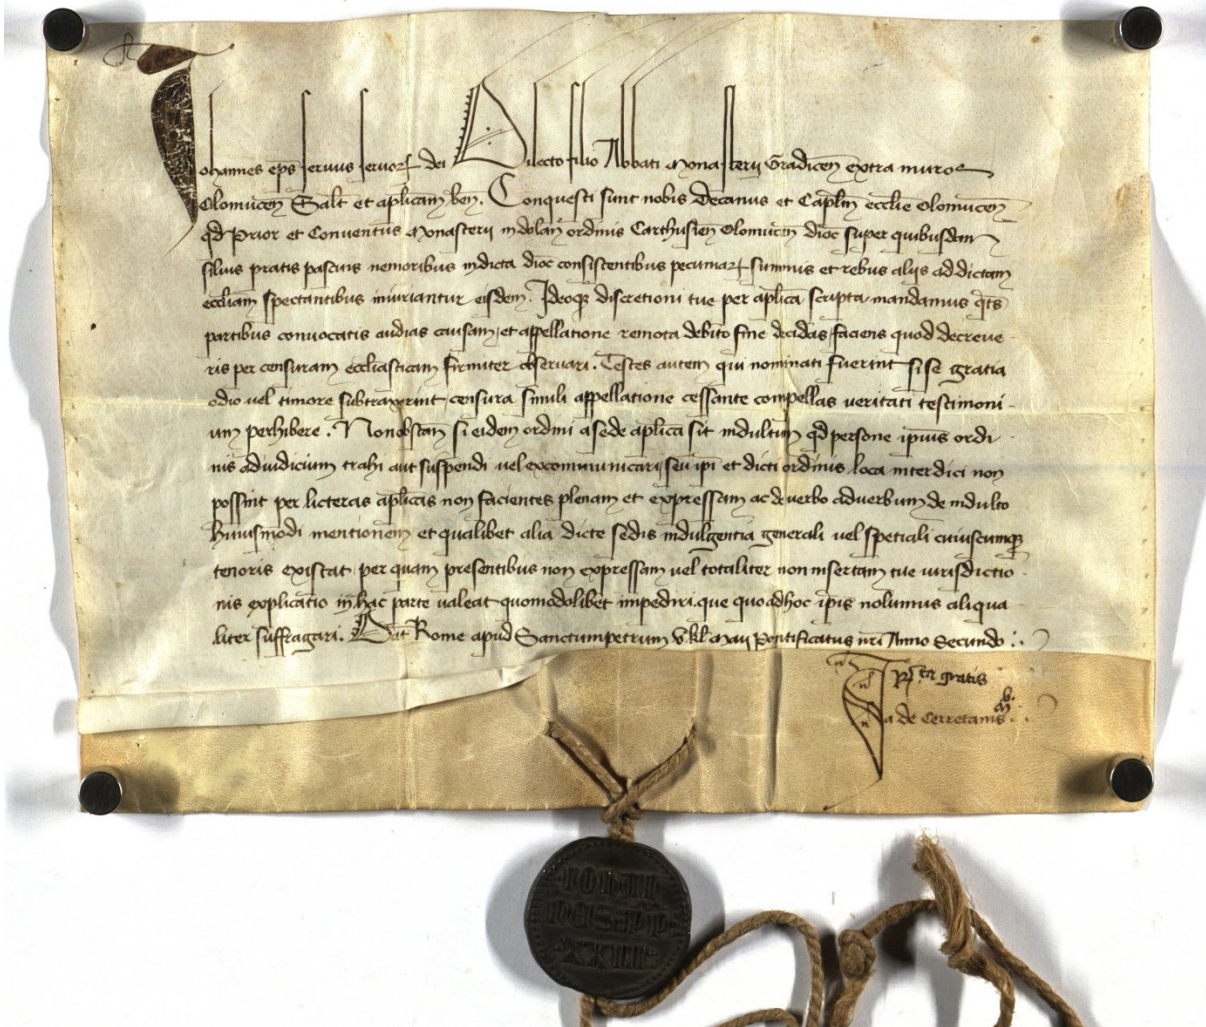 Johannes eps servus servor dei Dilecto filio Abbati Monasterii Gradicen extra muros
Olomucen Salt et aplicam ben. Conquesti sunt nobis Decanus et Caplm ecclie Olomucen
qd Prior et Conventus Monasterii in dolan ordinis Carthusien Olomucen dioc super quibusdam
silvis pratis pascuis nemoribus in dicta dioc consistentibus pecuniar summis et rebus aliis ad dictam
eccliam spectantibus iniuriantur eisdem. Ideoqz discretioni tue per aplica scripta mandamus qts
partibus convocatis audias causam et appellatione remota debito fine decidas faciens quod decreve
ris per censuram eccliasticam firmiter observari. Testes autem qui nominati fuerint si se gratia
odio vel timore subtraxerint censura simili appellatione cessante compellas veritati testimoni-
um perhibere. Nonobstan si eidem ordini a sede aplica sit indultum qd persone ipius ordi-
nis ad iudicium trahi aut suspendi vel excommunicari seu ipi et dicti ordinis loca interdici non
possint per licteras aplicas non facientes plenam et expressam ac de verbo ad verbum de indulto
huiusmodi mentionem et qualibet alia dicte sedis indulgentia generali vel spetiali cuiuscumqz
tenoris existat per quam presentibus non expressam vel totaliter non insertam tue iurisdictio-
nis explicatio in hac parte valeat quomodolibet impediri que quoadhoc ipis nolumus aliqua-
liter suffragari. Dat Rome apud Sanctumpetrum V kl Maii Pontificatus nri Anno Secundo
Rta gratis
Ja de Cerretanis
IOHAN
NES PP
XXIII